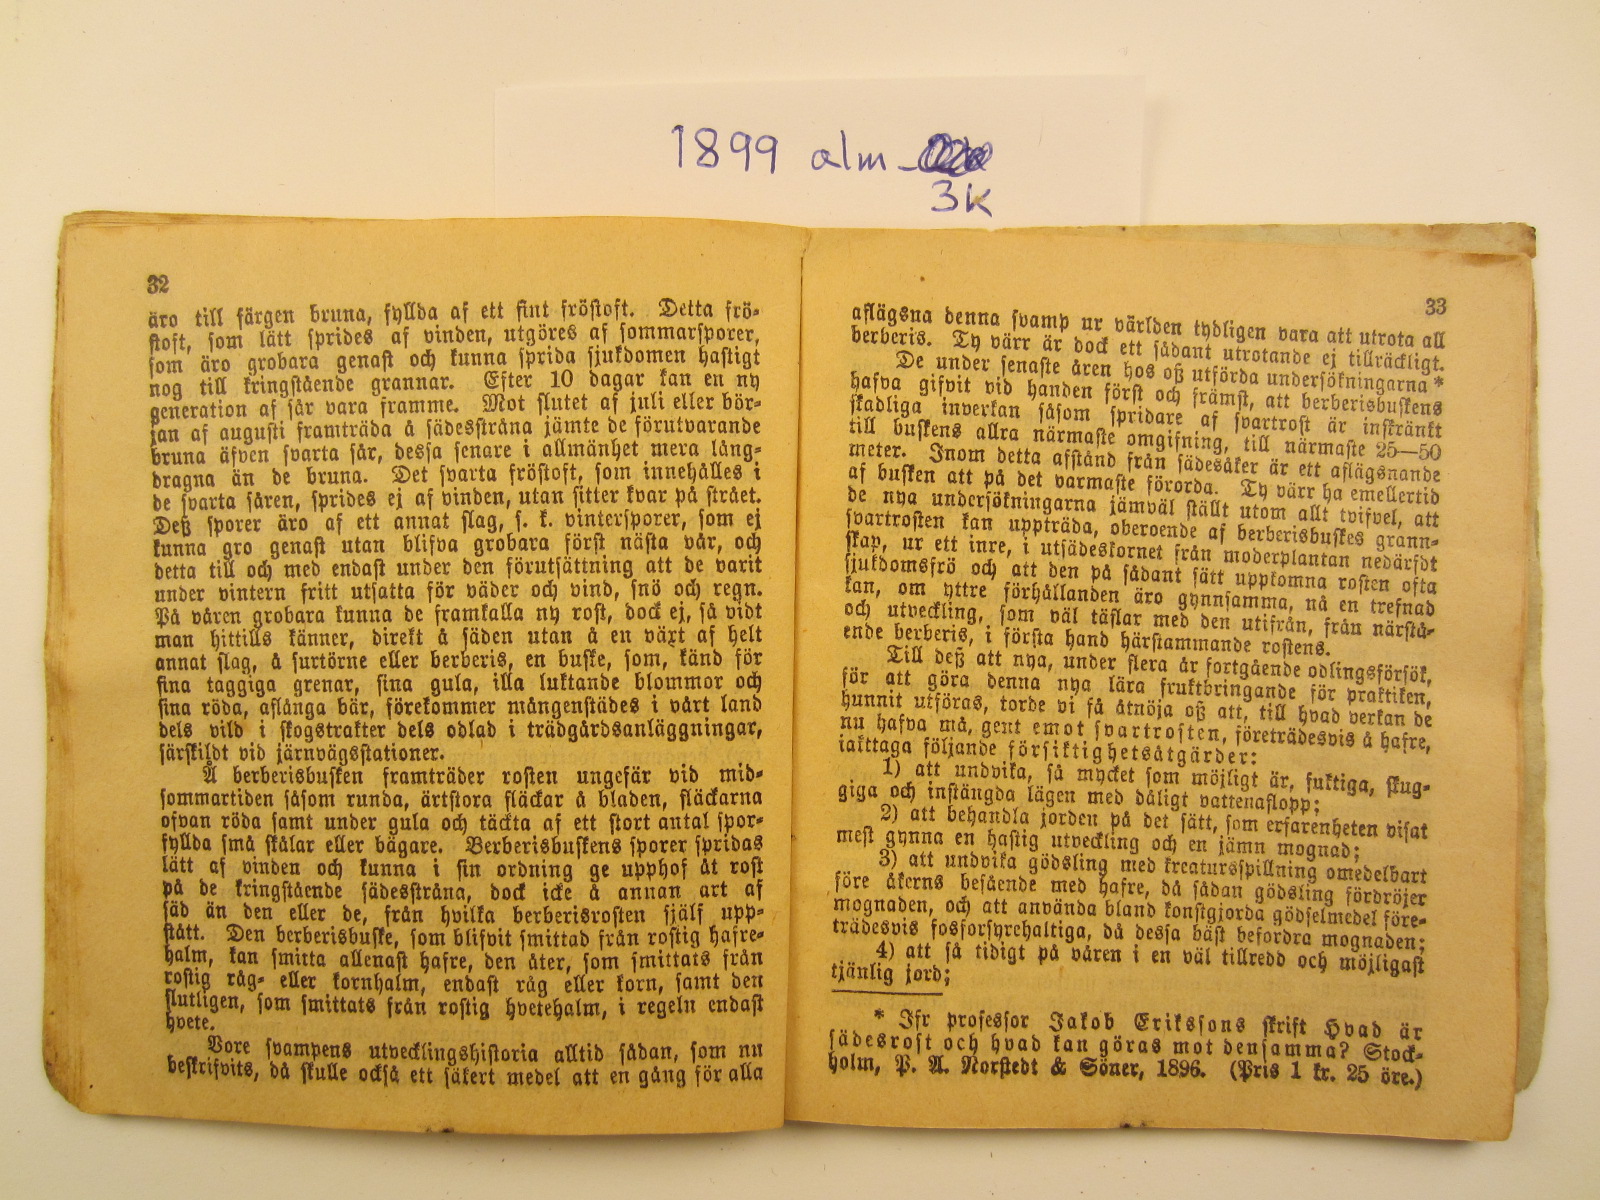 1899 alm
3k
32
äro till färgen bruna, fyllda af ett fint fröstoft. Detta frö-
stoft, som lätt sprides af vinden, utgöres af sommarsporer,
som äro grobara genast och kunna sprida sjukdomen hastigt
nog till kringstående grannar. Efter 10 dagar kan en ny
generation af sår vara framme. Mot slutet af juli eller bör-
jan af augusti framträda å sädesstråna jämte de förutvarande
bruna äfven svarta sår, dessa senare i allmänhet mera lång-
dragna än de bruna. Det svarta fröstoft, som innehålles i
de svarta såren, sprides ej af vinden, utan sitter kvar på strået.
Dess sporer äro af ett annat slag, s. k. vintersporer, som ej
kunna gro genast utan blifva grobara först nästa vår, och
detta till och med endast under den förutsättning att de varit
under vintern fritt utsatta för väder och vind, snö och regn.
På våren grobara kunna de framkalla ny rost, dock ej, så vidt
man hittills känner, direkt å säden utan å en växt af helt
annat slag, å surtörne eller berberis, en buske, som, känd för
sina taggiga grenar, sina gula, illa luktande blommor och
sina röda, aflånga bär, förekommer mångenstädes i vårt land
dels vild i skogstrakter dels odlad i trädgårdsanläggningar,
särskildt vid järnvägsstationer.
Å berberisbusken framträder rosten ungefär vid mid-
sommartiden såsom runda, ärtstora fläckar å bladen, fläckarna
ofvan röda samt under gula och täckta af ett stort antal spor-
fyllda små skålar eller bägare. Berberisbuskens sporer spridas
lätt af vinden och kunna i sin ordning ge upphof åt rost
på de kringstående sädesstråna, dock icke å annan art af
säd än den eller de, från hvilka berberisrosten själf upp-
stått. Den berberisbuske, som blifvit smittad från rostig hafre-
halm, kan smitta allenast hafre, den åter, som smittats från
rostig råg- eller kornhalm, endast råg eller korn, samt den
slutligen, som smittats från rostig hvetehalm, i regeln endast
hvete.
Vore svampens utvecklingshistoria alltid sådan, som nu
beskrifvits, då skulle också ett säkert medel att en gång för alla
33
aflägsna denna svamp ur världen tydligen vara att utrota all
berberis. Ty värr är dock ett sådant utrotande ej tillräckligt.
De under senaste åren hos oss utförda undersökningarna *
hafva gifvit vid handen först och främst, att berberisbuskens
skadliga inverkan såsom spridare af svartrost är inskränkt
till buskens allra närmaste omgifning, till närmaste 25—50
meter. Inom detta afstånd från sädesåker är ett aflägsnande
af busken att på det varmaste förorda. Ty värr ha emellertid
de nya undersökningarna jämväl ställt utom allt tvifvel, att
svartrosten kan uppträda, oberoende af berberisbuskes grann-
skap, ur ett inre, i utsädeskornet från moderplantan nedärfdt
sjukdomsfrö och att den på sådant sätt uppkomna rosten ofta
kan, om yttre förhållanden äro gynnsamma, nå en trefnad
och utveckling, som väl täflar med den utifrån, från närstå-
ende berberis, i första hand härstammande rostens.
Till dess att nya, under flera år fortgående odlingsförsök,
för att göra denna nya lära fruktbringande för praktiken,
hunnit utföras, torde vi få åtnöja oss att, till hvad verkan de
nu hafva må, gent emot svartrosten, företrädesvis å hafre,
iakttaga följande försiktighetsåtgärder:
1) att undvika, så mycket som möjligt är, fuktiga, skug-
giga och instängda lägen med dåligt vattenaflopp;
2) att behandla jorden på det sätt, som erfarenheten visat
mest gynna en hastig utveckling och en jämn mognad;
3) att undvika gödsling med kreatursspillning omedelbart
före åkerns besående med hafre, då sådan gödsling fördröjer
mognaden, och att använda bland konstgjorda gödselmedel före-
trädesvis fosforsyrehaltiga, då dessa bäst befordra mognaden;
4) att så tidigt på våren i en väl tillredd och möjligast
tjänlig jord;
* Jfr professor Jakob Erikssons skrift Hvad är
sädesrost och hvad kan göras mot densamma? Stock-
holm, P. A. Norstedt & Söner, 1896. (Pris 1 kr. 25 öre.)